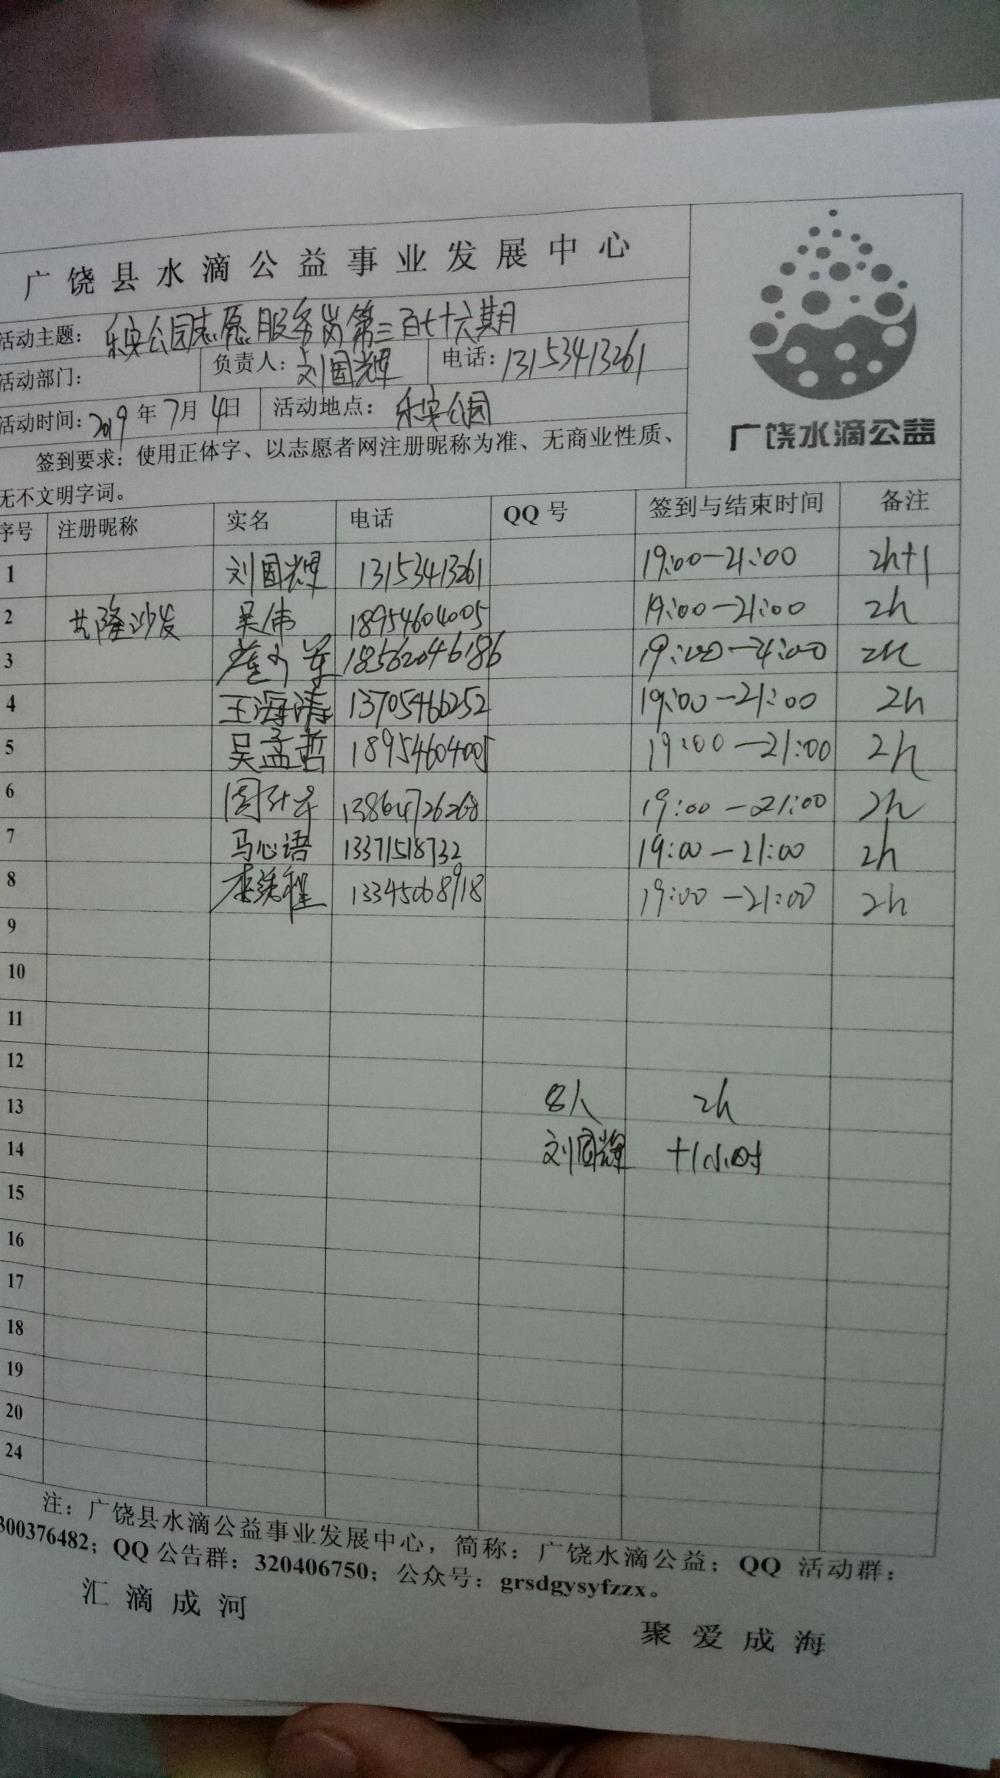 广饶县水滴公益事业发展中心
活动主题：乐安公园志愿服务岗第三百七十六期
活动部门： 负责人：刘国辉 电话：13153413261
活动时间：2019年7月4日 活动地点：乐安公园
广饶水滴公益
签到要求：使用正体字、以志愿者网注册昵称为准、无商业性质、
无不文明字词。
序号 注册昵称 实名 电话 QQ号 签到与结束时间 备注
1 刘国辉 13153413261 19:00-21:00 2h+1
2 隆沙发 吴伟 18954604005 19:00-21:00 2h
3 18562046186 19:00-21:00 2h
4 王海涛 13705466252 19:00-21:00 2h
5 吴孟哲 18954604005 19:00-21:00 2h
6 13864726268 19:00-21:00 2h
7 马心语 13371518732 19:00-21:00 2h
8 13345068918 19:00-21:00 2h
9
10
11
12
13 8人 2h
14 刘国辉 +1小时
15
16
17
18
19
20
24
注：广饶县水滴公益事业发展中心，简称：广饶水滴公益；QQ 活动群：
300376482；QQ公告群：320406750；公众号：grsdgysyfzzx。
汇滴成河
聚爱成海